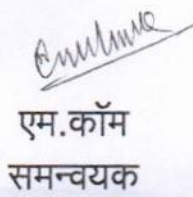 एम.कॉम
समन्वयक